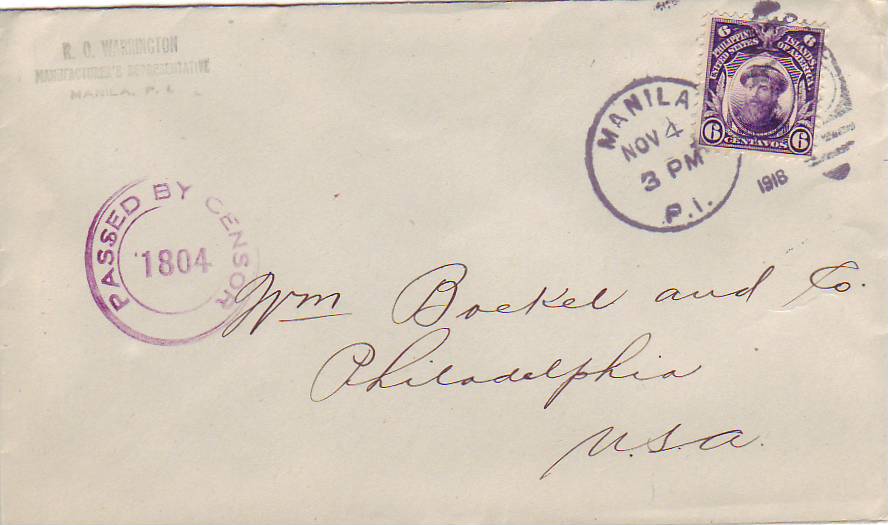 R. O. WARRINGTON
MANUFACTURER'S REPRESENTATIVE
MANILA, P. I.
MANILA
NOV 4
3 PM
P.I.
1918
6 6
PHILIPPINE ISLANDS
UNITED STATES OF AMERICA
6 CENTAVOS 6
PASSED BY CENSOR
1804
Wm Boekel and Co.
Philadelphia
U.S.A.